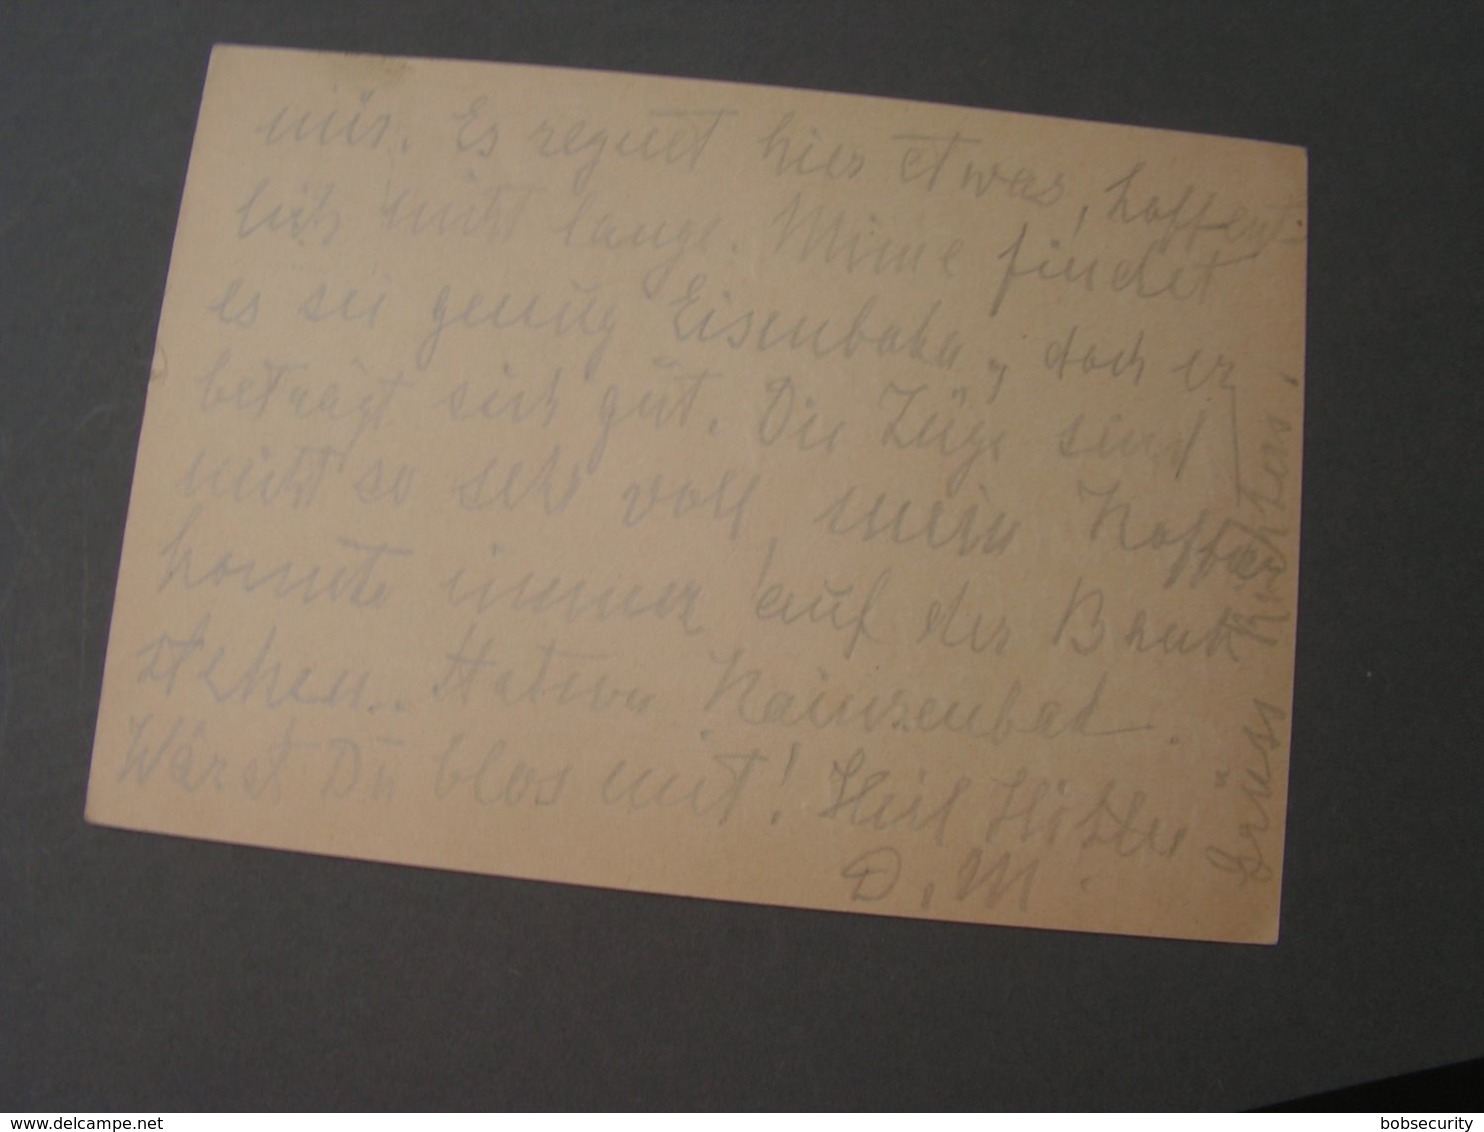 mir. Es regnet hier etwas, hoffent-
lich nicht lange. Mime findet
es sei genug Eisenbahn, doch er
beträgt sich gut. Die Züge sind
nicht so sehr voll, mein Koffer
konnte immer auf der Bank
stehen. Station Kainzenbad.
Wärst Du blos mit! Heil Hitler
D. M.
Grüss Richters.
delcampe.net
bobsecurity